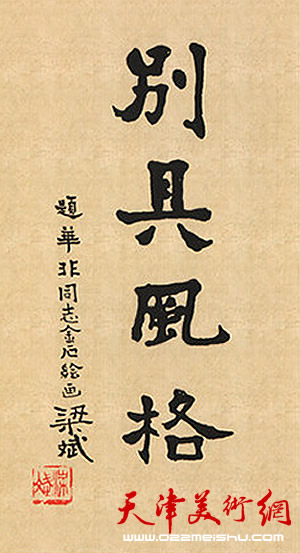 别具風格
題華非同志金石绘画
梁斌
天津美術網
www.022meishu.com